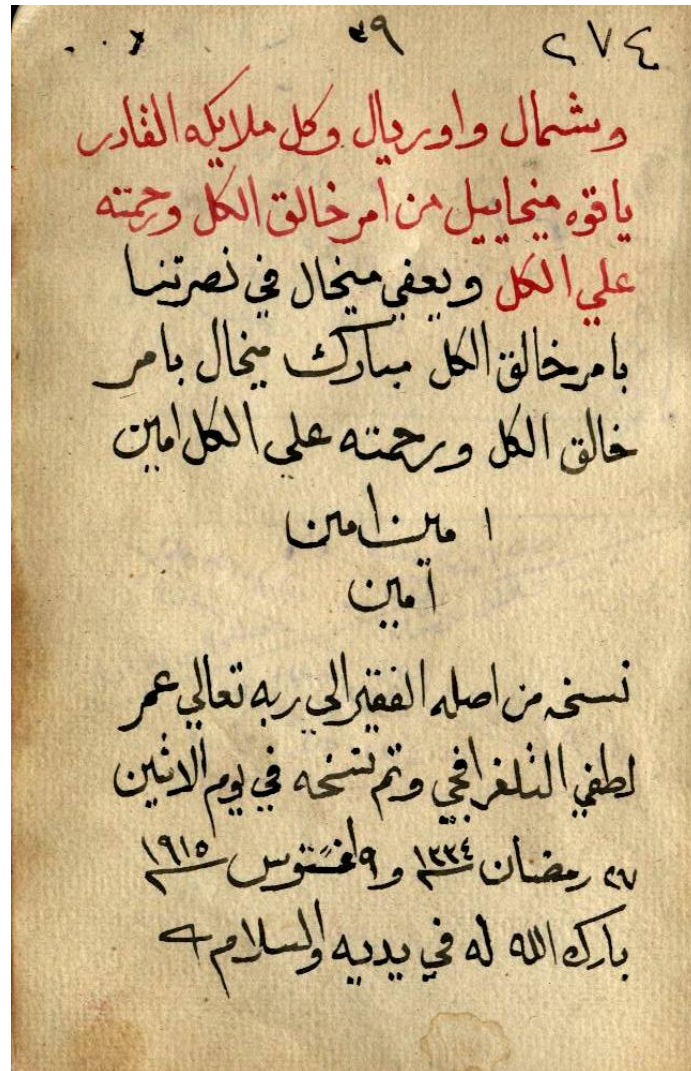 ٢٧٤ ٣٩
وشمال واوريال وكل ملايكه القادر
ياقوه ميخاييل من امر خالق الكل ورحمته
علي الكل ويعفي ميخال في نصرتنا
بامر خالق الكل مبارك ميخال بامر
خالق الكل ورحمته علي الكل امين
امين امين
آمين
نسخه من اصله الفقير الي ربه تعالي عمر
لطفي التلغرافجي وتم نسخه في يوم الاثنين
٢٧ رمضان ١٣٣٤ و ٩ اغستوس ١٩١٥
بارك الله له في يديه والسلام